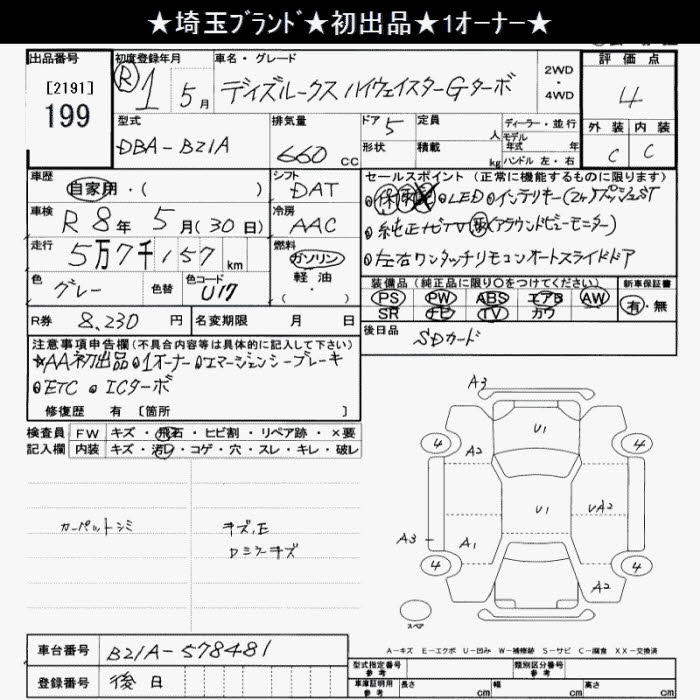 ★埼玉ﾌﾞﾗﾝﾄﾞ★初出品★1オーナー★
出品番号
[2191]
199
初度登録年月
R 1年 5月
車名・グレード
デイズルークス ハイウェイスターGターボ
2WD
・
4WD
評価点
4
外装 内装
C C
型式
DBA-B21A
排気量
660 CC
ドア 5
形状
定員 人
積載 kg
ディーラー・並行
モデル
年式 年
ハンドル 左・右
車歴
自家用・( )
シフト
DAT
車検
R 8年 5月(30日)
冷房
AAC
走行
5万7千157 km
燃料
ガソリン
軽油
・( )
色
グレー
色替
色コード
U17
R券 8,230 円
名変期限 月 日
セールスポイント (正常に機能するものに限ります)
LED インテリキー(2ヶ)プッシュST
純正ナビTV (アラウンドビューモニター)
左右ワンタッチリモコンオートスライドドア
装備品 (純正品に限り〇をつけてください)
PS PW ABS エアB AW
SR ナビ TV カワ
新車保証書
有・無
後日品
SDカード
注意事項申告欄(不具合内容等は具体的に記入して下さい)
★AA初出品 1オーナー エマージェンシーブレーキ
ETC ICターボ
修復歴 有 〔箇所 〕
検査員
記入欄
FW キズ・飛石・ヒビ割・リペア跡・×要
内装 キズ・汚れ・コゲ・穴・スレ・キレ・破レ
カーペットシミ
キズ、E
A3
4
4
A2
U1
U1
UA2
A3
A1
4
4
A2
スペア
A-キズ E-エクボ U-凹み W-補修跡 S-サビ C-腐食 XX-交換済
車台番号 B21A-578481
登録番号 後日
型式指定番号
参考
類別区分番号
参考
車庫証明用
参考
長さ cm
幅 cm
高さ cm